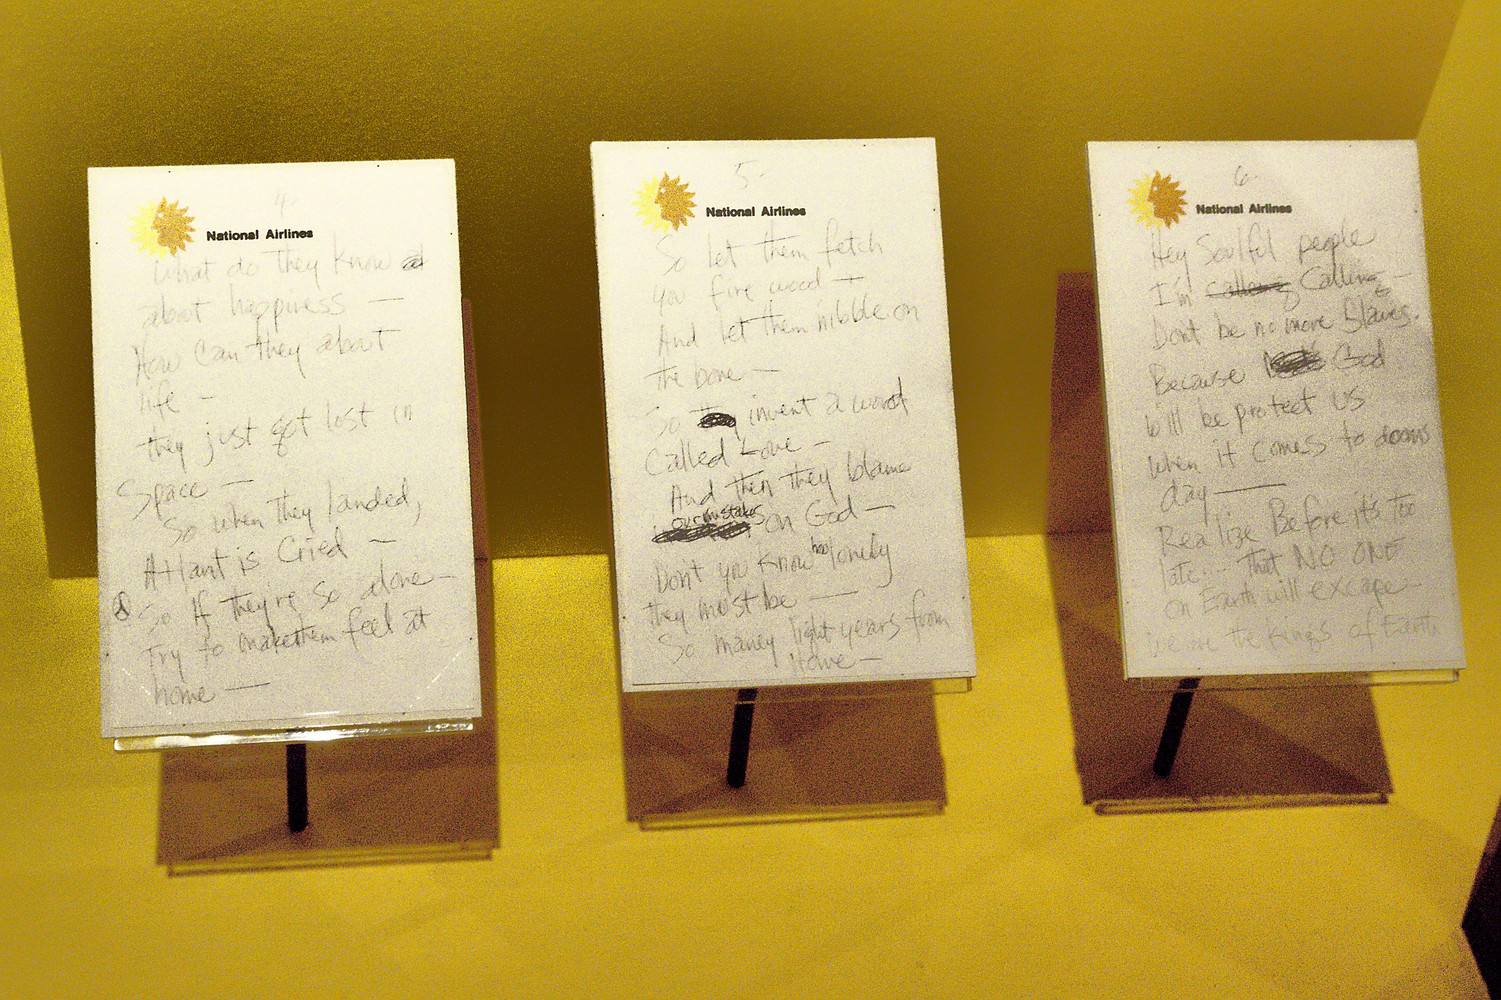 4-
National Airlines
What do they know
about happiness —
How can they about
life —
they just got lost in
Space —
So when they landed,
Atlantis Cried —
So If they're so alone —
Try to make them feel at
home —
5-
National Airlines
So let them fetch
you fire wood —
And let them nibble on
the bone —
So invent a word
Called Love —
And then they blame
our mistakes on God —
Don't you know how lonely
they must be —
So maney light years from
Home —
6-
National Airlines
Hey Soulful people
I'm calling Calling —
Dont be no more Slaves.
Because God
Will be protect us
when it comes to dooms
day —
Realize Before it's Too
late.... that NO ONE
on Earth will excape —
we are the Kings of Earth